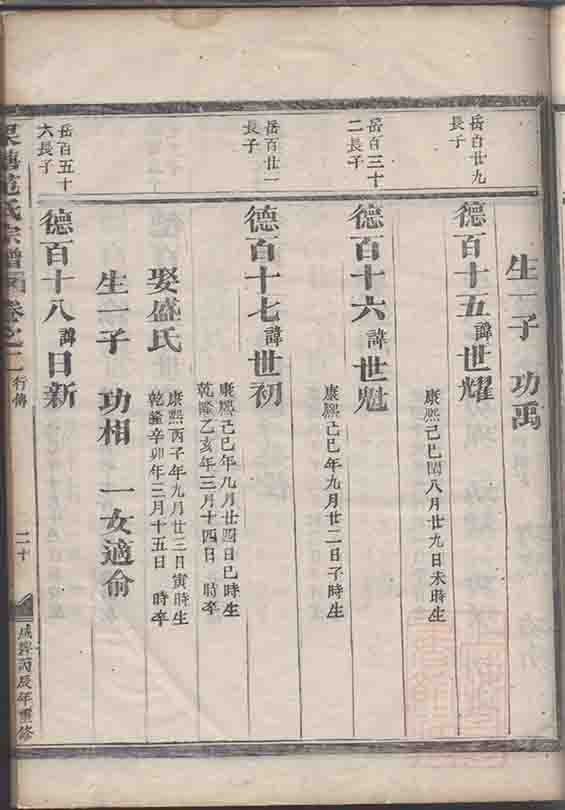 生一子 功禹
岳百廿九
長子
德百十五諱世耀
康熙己巳閏八月廿九日未時生
岳百三十
二長子
德百十六諱世魁
康熙己巳年九月廿二日子時生
岳百廿一
長子
德百十七諱世初
康熙己巳年九月廿四日巳時生
乾隆乙亥年三月十四日 時卒
娶盛氏
康熙丙子年九月廿二日寅時生
乾隆辛卯年三月十五日 時卒
生一子 功相 一女適俞
岳百五十
六長子
德百十八諱日新
氏宗譜 卷之二 行傳 二十 咸豐丙辰年重修